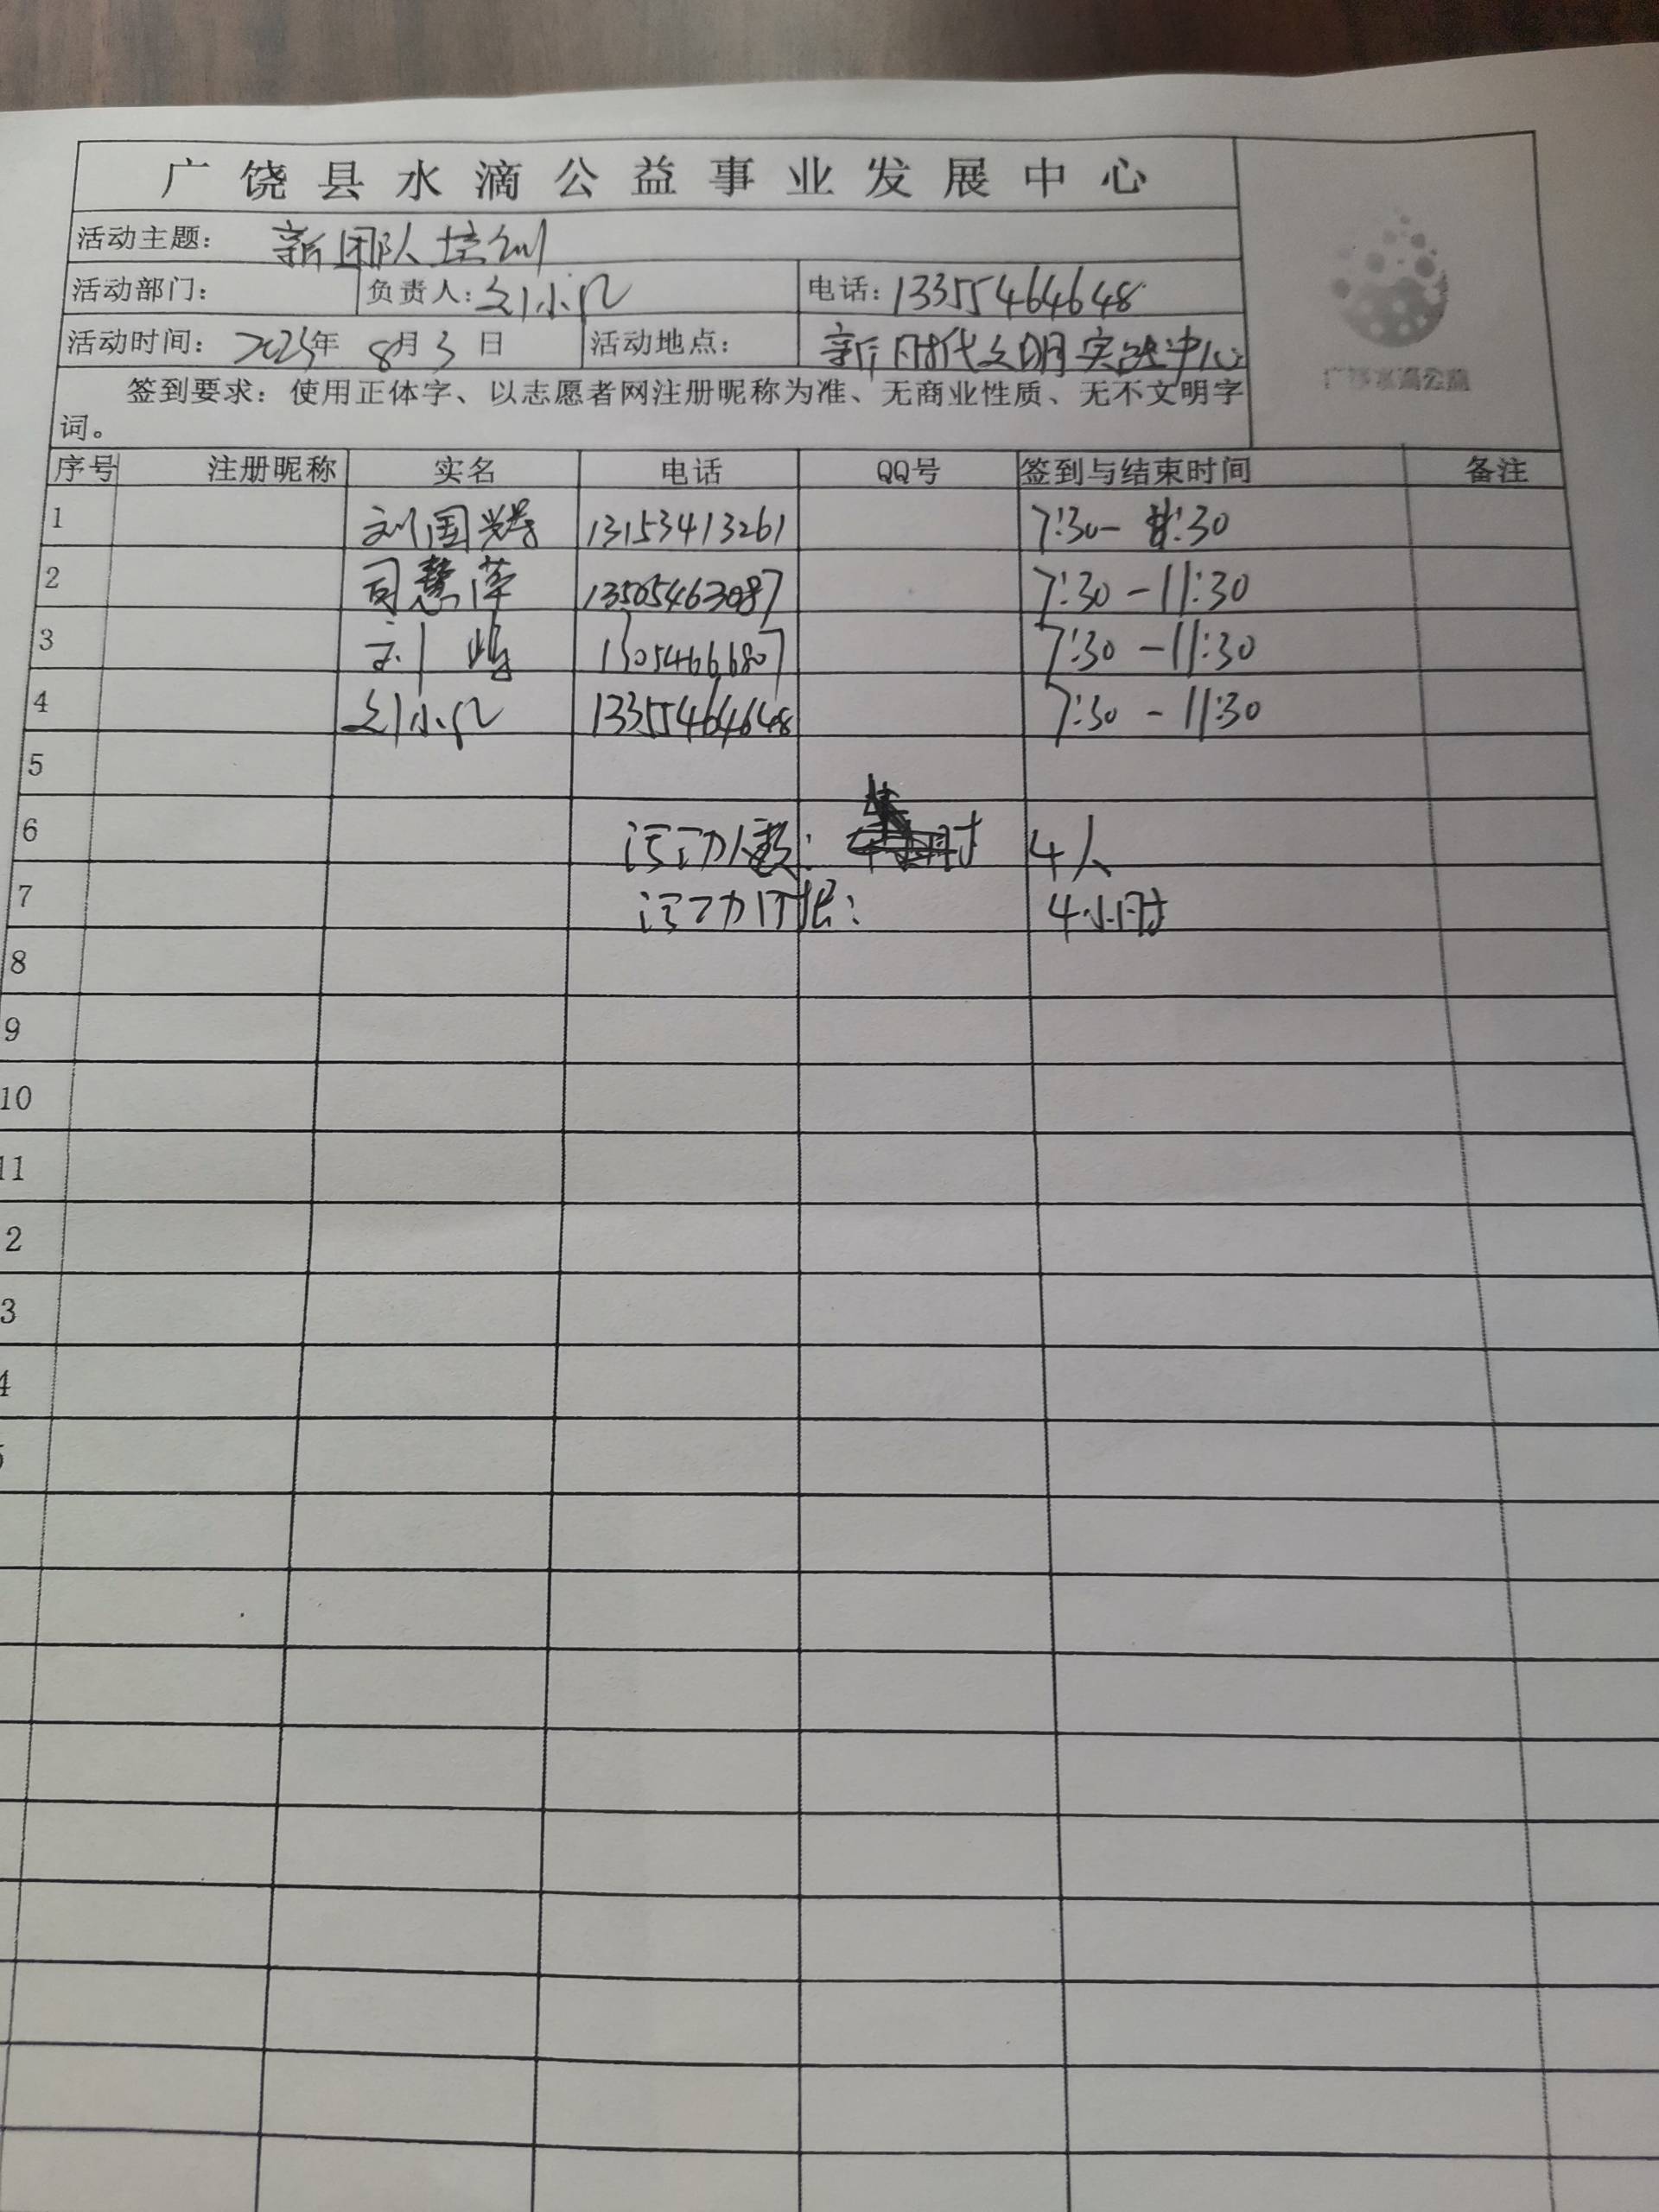 广饶县水滴公益事业发展中心
活动主题： 新团队培训
活动部门： 负责人：刘小 电话：13355464648
活动时间： 2025年 8月3日 活动地点： 新时代文明实践中心
广饶水滴公益
签到要求：使用正体字、以志愿者网注册昵称为准、无商业性质、无不文明字
词。
序号 注册昵称 实名 电话 QQ号 签到与结束时间 备注
1 刘国 13153413261 7:30-11:30
2 司慧萍 13505463087 7:30-11:30
3 刘 7:30-11:30
4 刘小 13355464648 7:30-11:30
5
6 活动人数： 4人
7 活动时长： 4小时
8
9
10
11
2
3
4
5